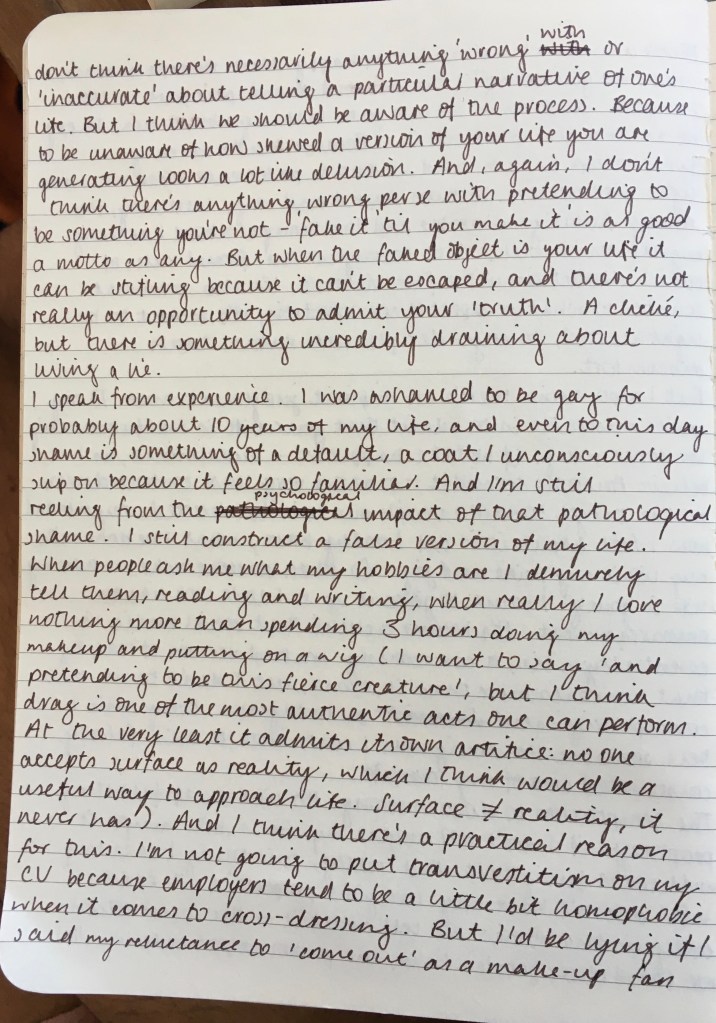 don't think there's necessarily anything 'wrong' with with or
'inaccurate' about telling a particular narrative of one's
life. But I think we should be aware of the process. Because
to be unaware of how skewed a version of your life you are
generating looks a lot like delusion. And, again, I don't
think there's anything wrong per se with pretending to
be something you're not - 'fake it 'til you make it' is as good
a motto as any. But when the faked object is your life it
can be stifling because it can't be escaped, and there's not
really an opportunity to admit your 'truth'. A cliché,
but there is something incredibly draining about
living a lie.
I speak from experience. I was ashamed to be gay for
probably about 10 years of my life, and even to this day
shame is something of a default, a coat I unconsciously
slip on because it feels so familiar. And I'm still
reeling from the pathological psychological impact of that pathological
shame. I still construct a false version of my life.
When people ask me what my hobbies are I demurely
tell them, reading and writing, when really I love
nothing more than spending 3 hours doing my
makeup and putting on a wig (I want to say 'and
pretending to be this fierce creature', but I think
drag is one of the most authentic acts one can perform.
At the very least it admits its own artifice: no one
accepts surface as reality, which I think would be a
useful way to approach life. Surface ≠ reality, it
never has). And I think there's a practical reason
for this. I'm not going to put transvestitism on my
CV because employers tend to be a little bit homophobic
when it comes to cross-dressing. But I'd be lying if I
said my reluctance to 'come out' as a make-up fan